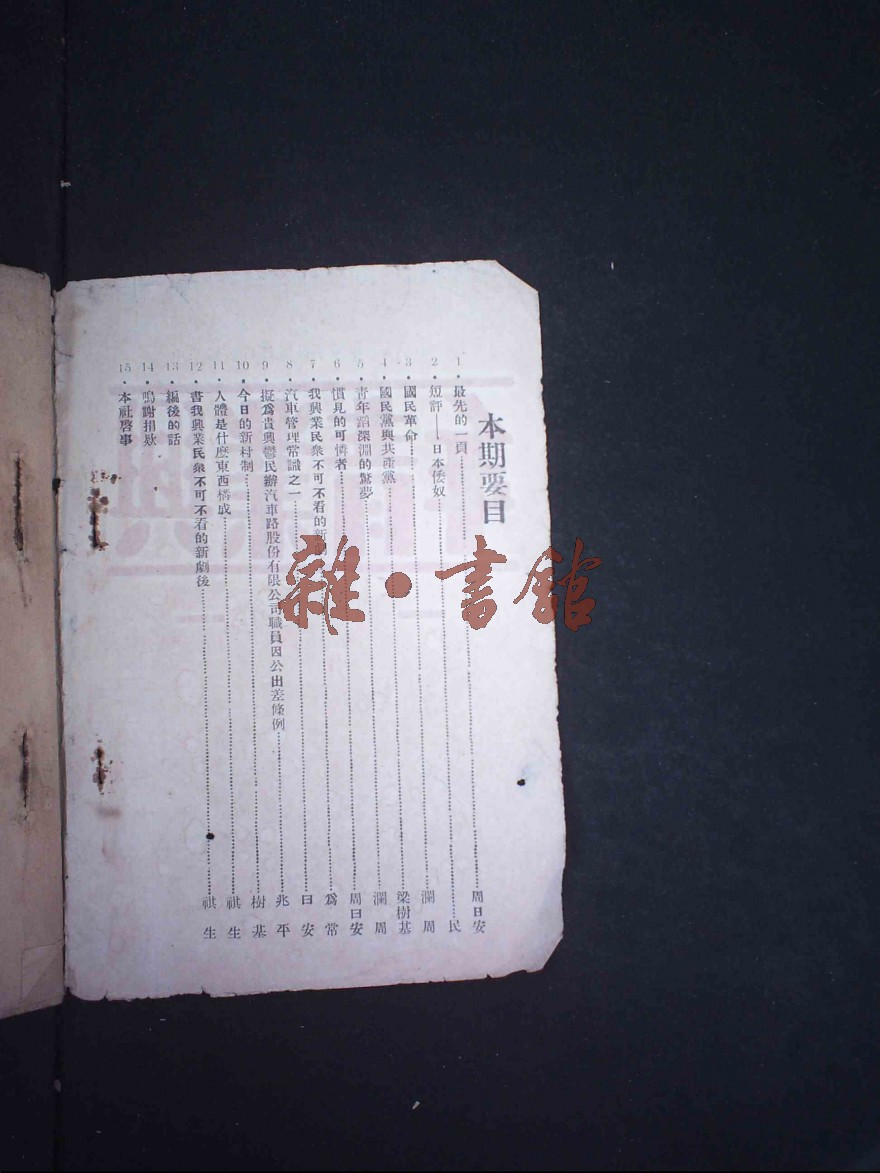 本期要目
1．最先的一頁……周日安
2．短評——日本倭奴……民
3．國民革命……瀾周
4．國民黨與共產黨……梁樹基
5．青年蹈深淵的驚夢……瀾周
6．慣見的可憐者……周日安
7．我興業民衆不可不看的新……爲常
8．汽車管理常識之一……日安
9．擬爲貴興鬱民辦汽車路股份有限公司職員因公出差條例……兆平
10．今日的新村制……樹基
11．人體是什麽東西構成……祺生
12．書我興業民衆不可不看的新劇後……祺生
13．編後的話
14．鳴謝捐欵
15．本社啓事
雜·書館